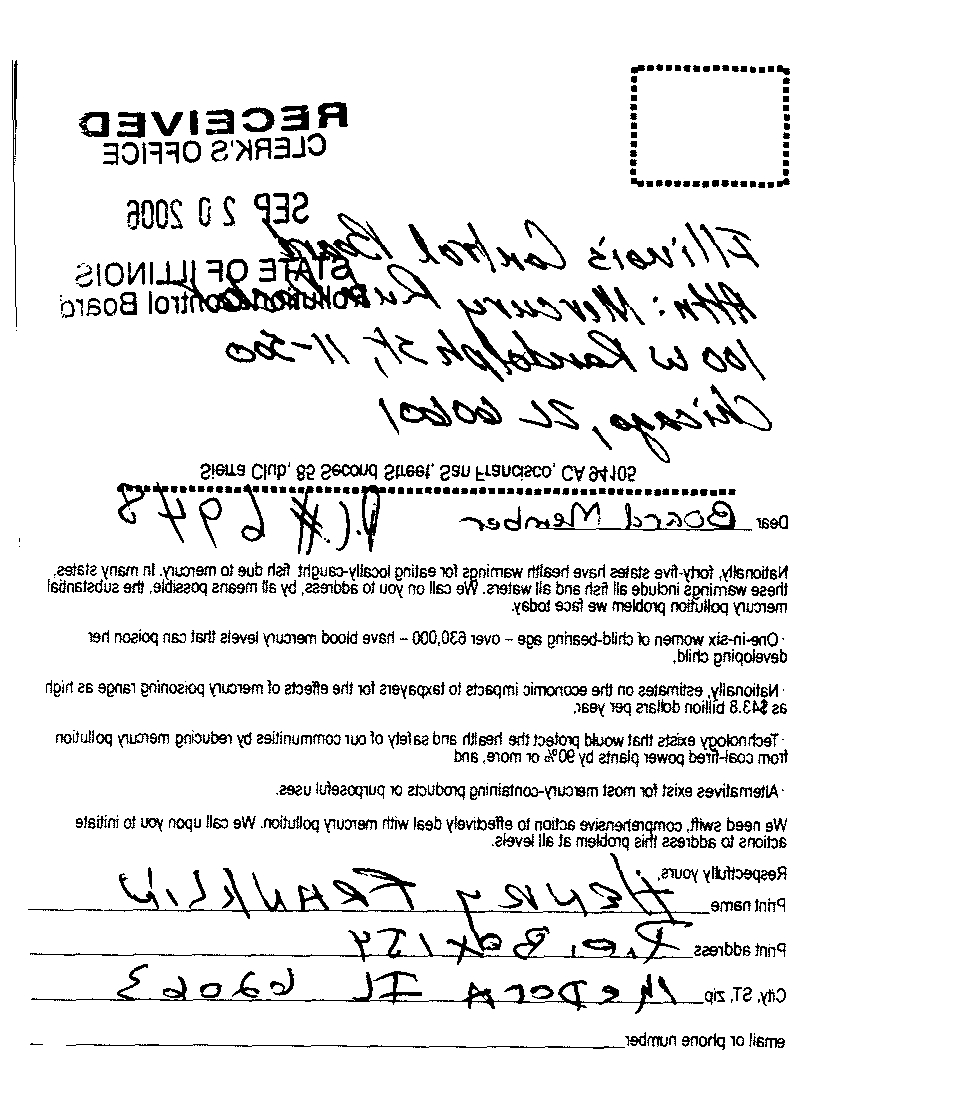 RECEIVED
CLERK'S OFFICE
SEP 20 2006
STATE OF ILLINOIS
Pollution Control Board
Illinois Control Board
Attn: Mercury Rule
100 W Randolph St, 11-500
Chicago, IL 60601
Sierra Club, 85 Second Street, San Francisco, CA 94105
Dear Board Member P.C.# 6948
Nationally, forty-five states have health warnings for eating locally-caught fish due to mercury. In many states,
these warnings include all fish and all waters. We call on you to address, by all means possible, the substantial
mercury pollution problem we face today.
· One-in-six women of child-bearing age – over 630,000 – have blood mercury levels that can poison her
developing child,
· Nationally, estimates on the economic impacts to taxpayers for the effects of mercury poisoning range as high
as $43.8 billion dollars per year,
· Technology exists that would protect the health and safety of our communities by reducing mercury pollution
from coal-fired power plants by 90% or more, and
· Alternatives exist for most mercury-containing products or purposeful uses.
We need swift, comprehensive action to effectively deal with mercury pollution. We call upon you to initiate
actions to address this problem at all levels.
Respectfully yours,
Print name HENRY FRANKLIN
Print address P.O. Box 154
City, ST, zip MEDORA IL 62063
email or phone number